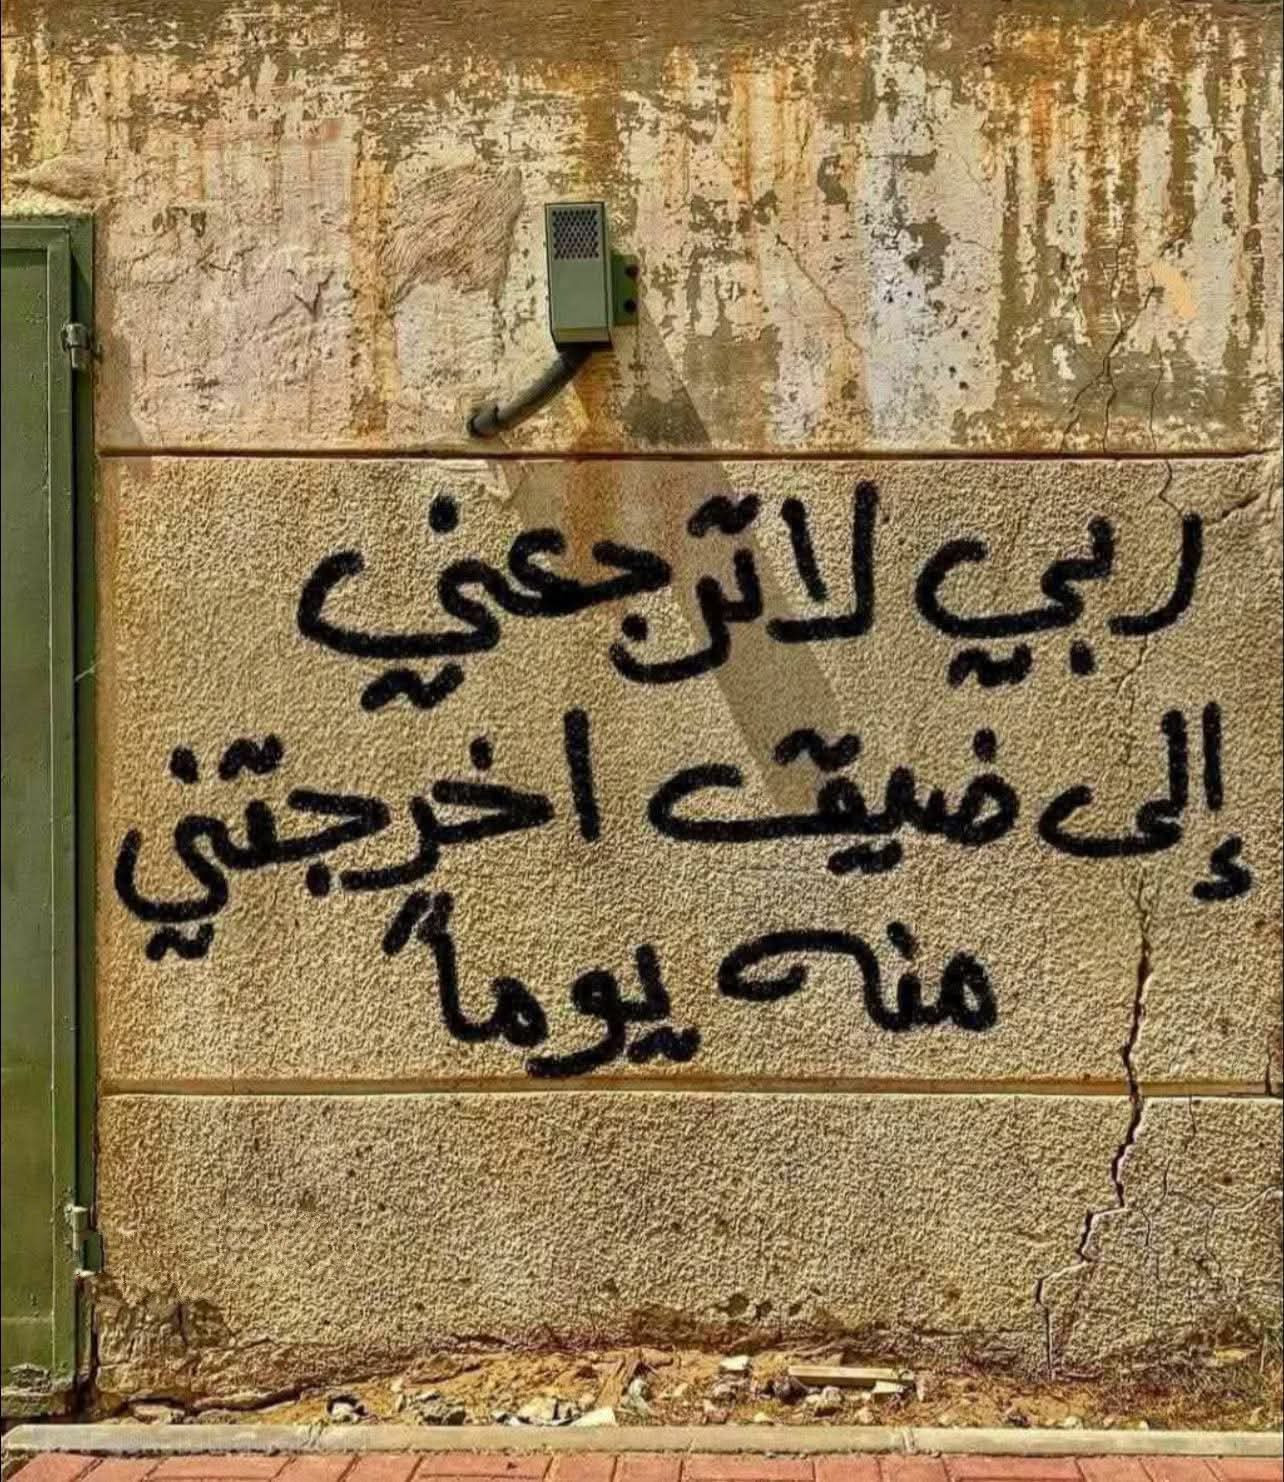 ربي لا ترجعني
إلى ضيق اخرجتني
منه يوماً